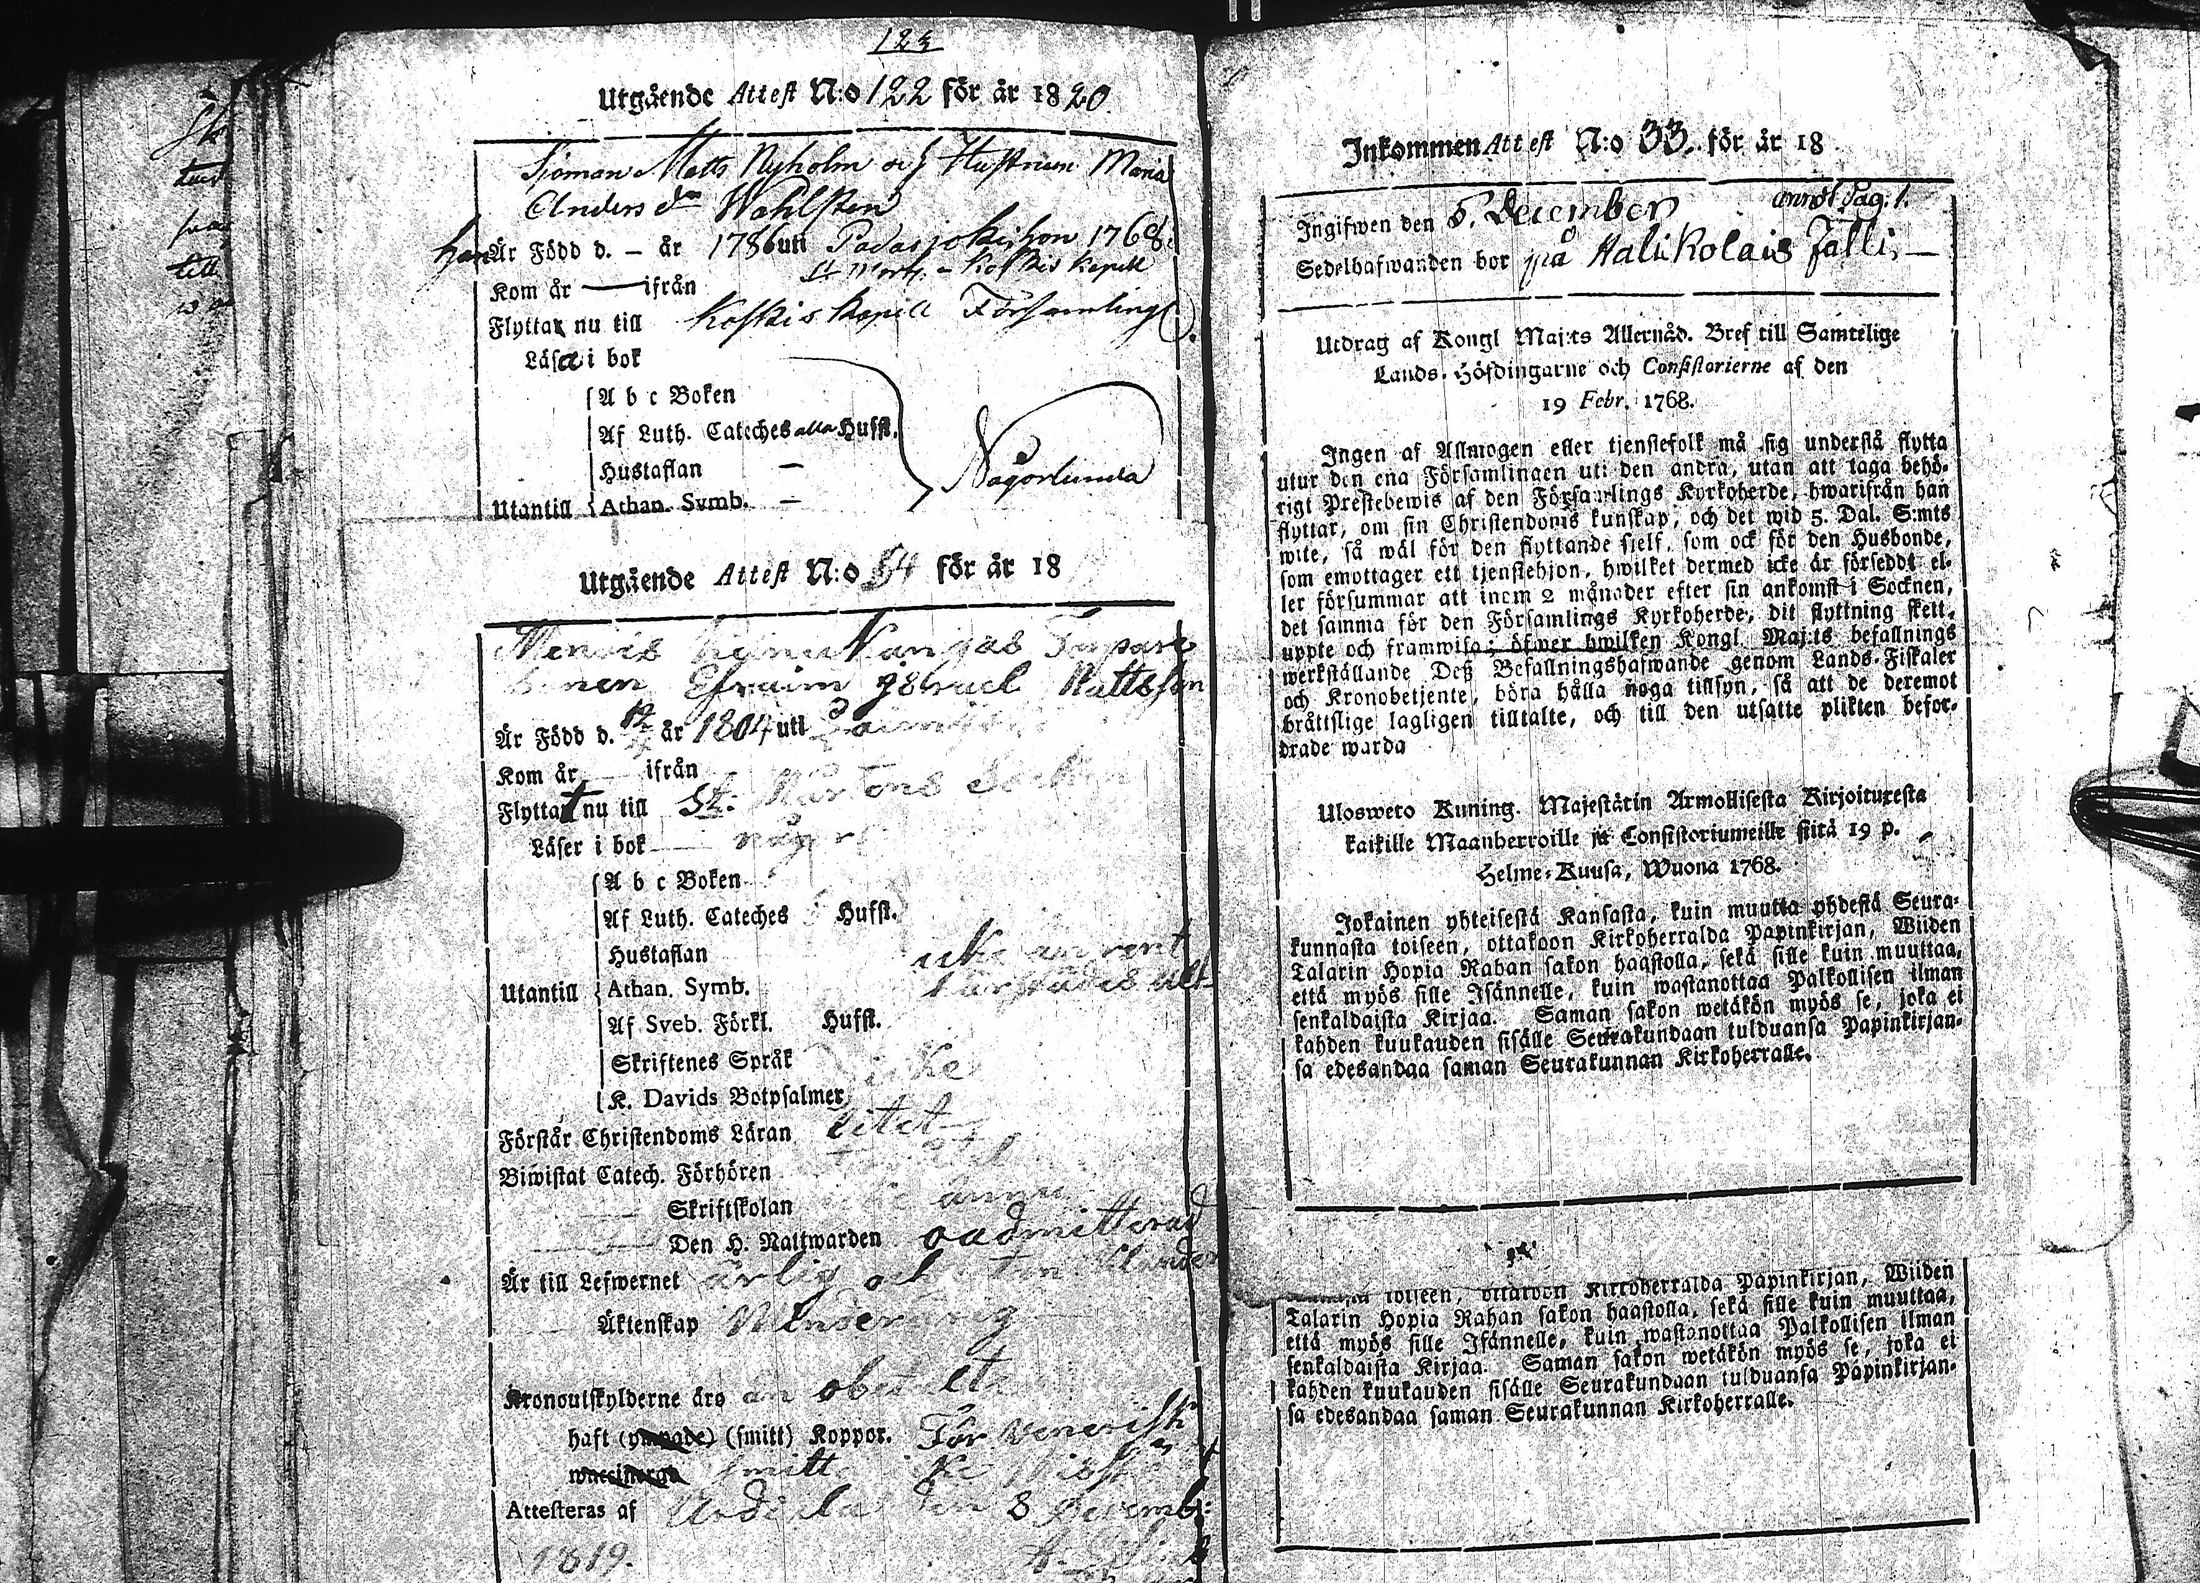 123
Utgående Attest N:o 122 för år 1820
Sjöman Matts Nyholm och Hustrun Maria
Anders dr Wahlsten
han Är Född d. – år 1786 uti Padasjoki hon 1768
St. Mort. – Koskis kapell
Kom år — ifrån
Flyttar nu till Koskis kapell Församling
Läsa i bok
A b c Boken
Af Luth. Cateches alla Hufst.
Hustaflan –
Utantill Athan. Symb. –
Någorlunda
Utgående Attest N:o 54 för år 18
Efraim Mattsson
Är Född d. år 1804 uti
Kom år — ifrån
Flyttat nu till St. Mårtens Socken
Läser i bok —
A b c Boken
Af Luth. Cateches Hufst.
Hustaflan
Utantill Athan. Symb.
Af Sveb. Förkl. Hufst.
Skriftenes Språk
K. Davids Botpsalmer
Förstår Christendoms Läran litet
Biwistat Catech. Förhören
— Skriftskolan
— Den H. Nattwarden oadmitterad
Är till Lefwernet ärlig och
— Äktenskap Minderårig
Kronoutskylderne äro
haft (ympade) (smitt) Koppor. För venerisk
waccinerad smitt
Attesteras af den 8 Decemb:
1819.
Inkommen Attest N:o 33. för år 18
Ingifwen den 5. December annot. pag. 1.
Sedelhafwanden bor på Halikolais Jälli. —
Utdrag af Kongl Maj:ts Allernåd. Bref till Samtelige
Lands-Höfdingarne och Consistorierne af den
19 Febr. 1768.
Ingen af Allmogen eller tjenstefolk må sig understå flytta
utur den ena Församlingen uti den andra, utan att taga behö-
rigt Prestebewis af den Församlings Kyrkoherde, hwarifrån han
flyttar, om sin Christendoms kunskap, och det wid 5. Dal. S:mts
wite, så wäl för den flyttande sjelf, som ock för den Husbonde,
som emottager ett tjenstehjon, hwilket dermed icke är försedt el-
ler försummar att inom 2 månader efter sin ankomst i Socknen,
det samma för den Församlings Kyrkoherde, dit flyttning skett,
uppte och framwisa; öfwer hwilken Kongl Maj:ts befallnings
werkställande Deß Befallningshafwande genom Lands-Fiskaler
och Kronobetjente, böra hålla noga tillsyn, så att de deremot
bråttslige lagligen tilltalte, och till den utsatte plikten befor-
drade warda
Ulosweto Kuning. Majestätin Armollisesta Kirjoituxesta
kaikille Maanherroille ja Consistoriumeille siitä 19 p.
Helme-Kuusa, Wuona 1768.
Jokainen yhteisestä Kansasta, kuin muutta yhdestä Seura-
kunnasta toiseen, ottakoon Kirkoherralda Papinkirjan, Wiiden
Talarin Hopia Rahan sakon haastolla, sekä sille kuin muuttaa,
että myös sille Isännelle, kuin wastanottaa Palkollisen ilman
senkaldaista Kirjaa. Saman sakon wetäkön myös se, joka ei
kahden kuukauden sisälle Seurakundaan tulduansa Papinkirjan-
sa edesandaa saman Seurakunnan Kirkoherralle.
toiseen, ottakoon Kirkoherralda Papinkirjan, Wiiden
Talarin Hopia Rahan sakon haastolla, sekä sille kuin muuttaa,
että myös sille Isännelle, kuin wastanottaa Palkollisen ilman
senkaldaista Kirjaa. Saman sakon wetäkön myös se, joka ei
kahden kuukauden sisälle Seurakundaan tulduansa Papinkirjan-
sa edesandaa saman Seurakunnan Kirkoherralle.